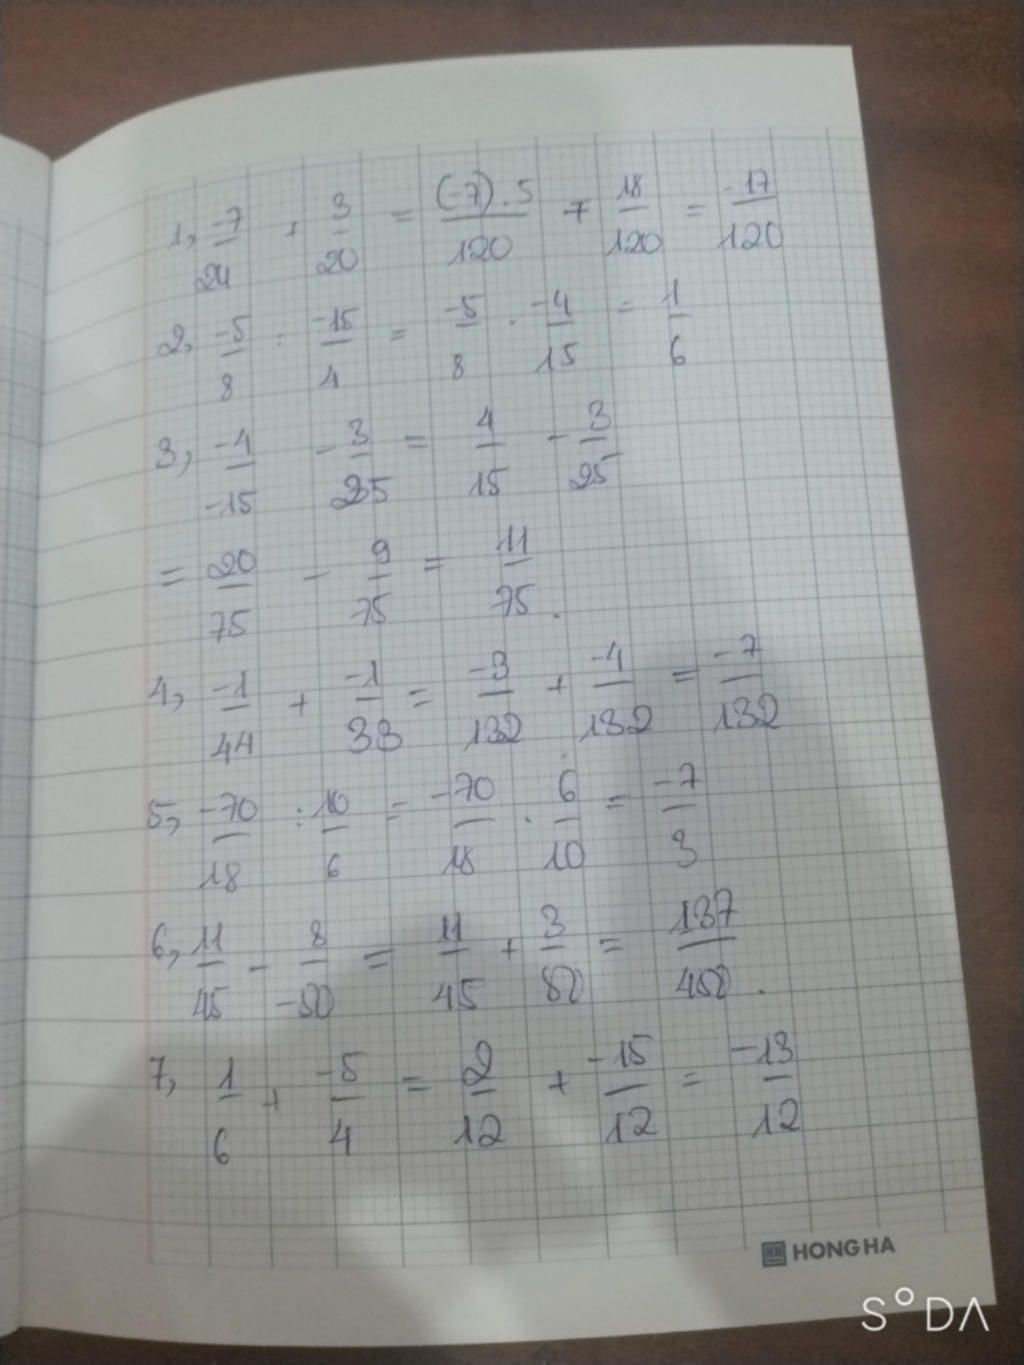 1, -7/24 + 3/20 = (-7).5/120 + 18/120 = -17/120
2, -5/8 : -15/4 = -5/8 . -4/15 = 1/6
3, -4/-15 - 3/25 = 4/15 - 3/25
= 20/75 - 9/75 = 11/75.
4, -1/44 + -1/33 = -3/132 + -4/132 = -7/132
5, -70/18 : 10/6 = -70/18 . 6/10 = -7/3
6, 11/45 - 8/-50 = 11/45 + 3/50 = 137/450.
7, 1/6 + -5/4 = 2/12 + -15/12 = -13/12
HONG HA
SODA